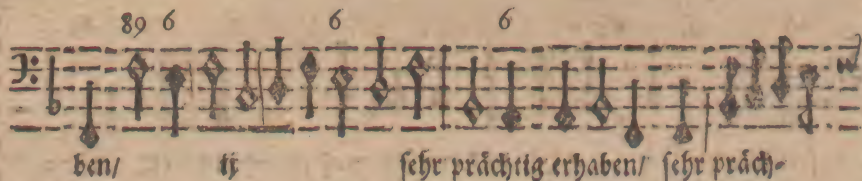 89 6 6 6
ben/ ij ſehr prächtig erhaben/ ſehr präch-